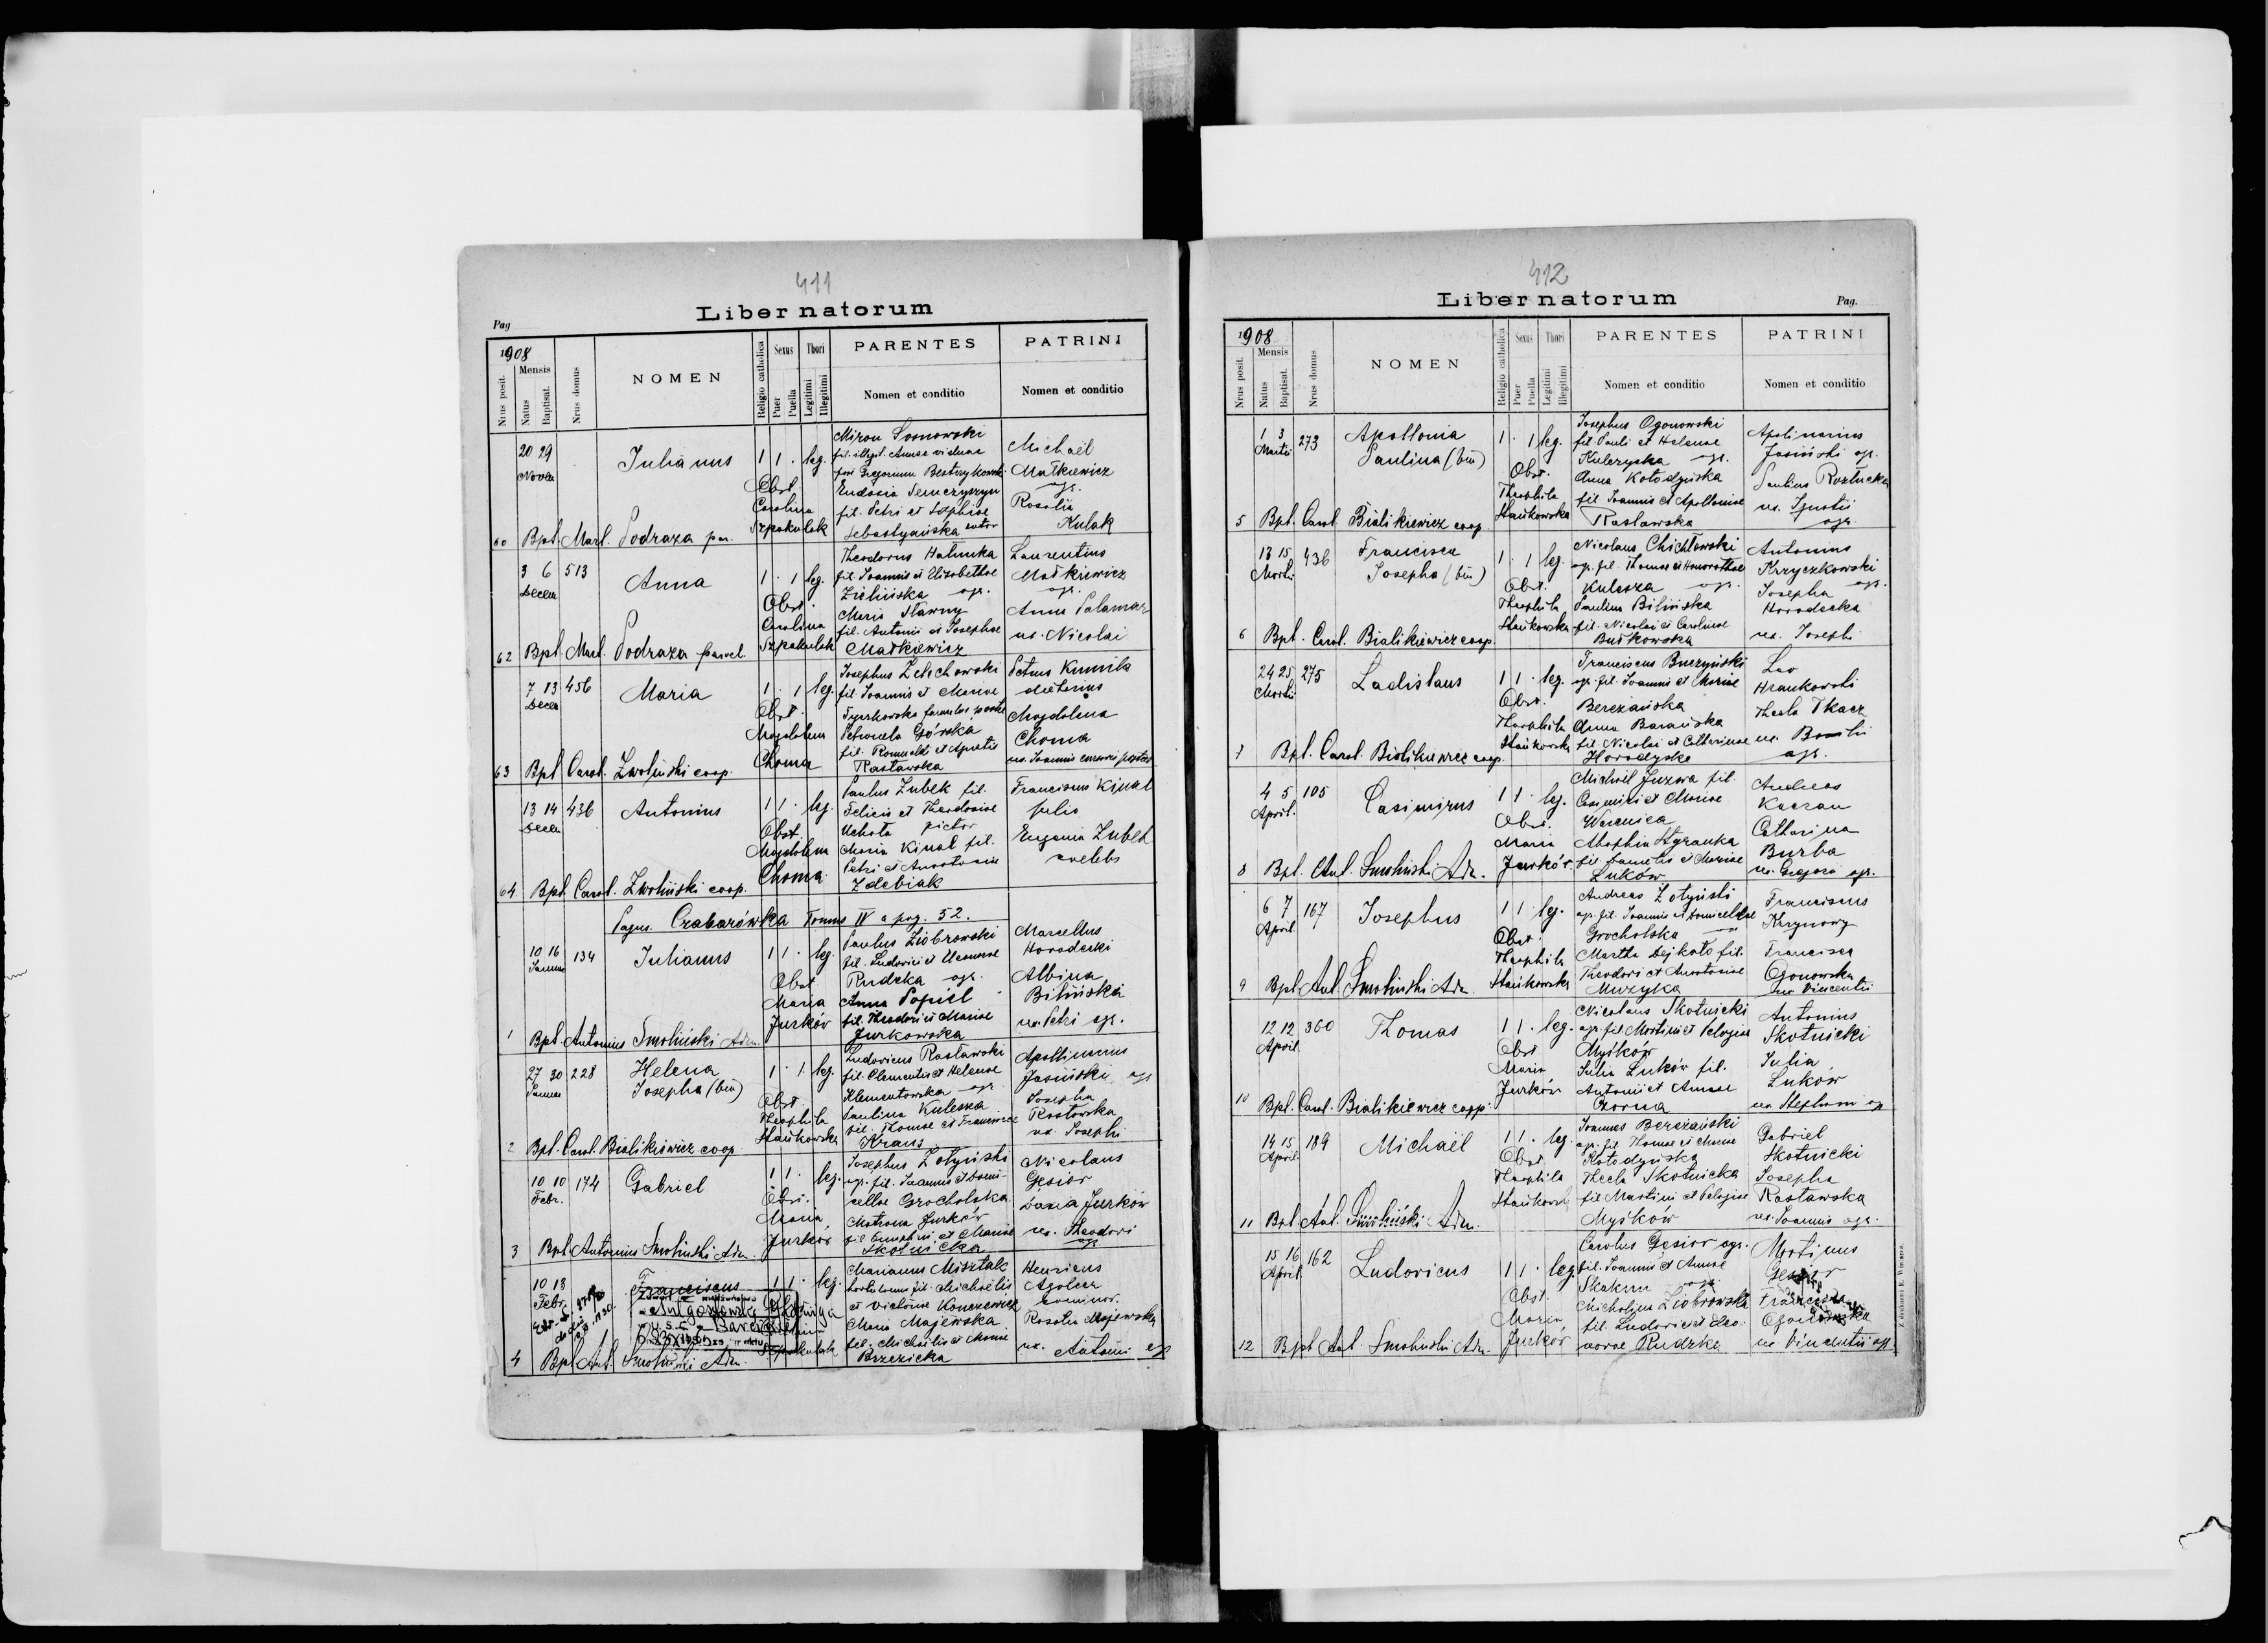 411
Liber natorum
Pag
1908
Nrus posit.
Mensis
Natus
Baptisat.
Nrus domus
NOMEN
Religio catholica
Sexus
Puer
Puella
Thori
Legitimi
Illegitimi
PARENTES
Nomen et conditio
PATRINI
Nomen et conditio
60
20 29
Novem
Julianus
1 1 . leg.
Obst.
Carolina
Szpakulak
Miron Sosnowski
fil. illegit. Annae viduae
post Gregorium
Eudosia Semczyszyn
fil. Petri et Sophiae
Sebastyańska sutor
Michaël
Małkiewicz
agr.
Rosalia
Kulak
Bpt. Marl. Podraza par.
62
3 6 513
Decem
Anna
1 . 1 leg.
Obst.
Carolina
Szpakulak
Theodorus Halunka
fil. Joannis et Elisabethae
Zielińska agr.
Maria Sławny
fil. Antonii et Josephae
Małkiewicz
Laurentius
Małkiewicz
agr.
Anna Palamar
ux. Nicolai
Bpt. Marl. Podraza
63
7 13 456
Decem
Maria
1 . 1 leg.
Obst.
Magdalena
Choma
Josephus Zelechowski
fil. Joannis et Mariae
Petronela Górska
fil. Romualdi et Agnetis
Rasławska
Petrus Kumila
Magdalena
Choma
ux. Joannis
Bpt. Carol. Zwoliński coop.
64
13 14 436
Decem
Antonius
1 1 . leg.
Obst.
Magdalena
Choma
Paulus Zubek fil.
Felicis et Theodosiae
Uchota pictor
Maria Kinal fil.
Petri et Anastasiae
Zdebiak
Franciscus Kinal
Eugenia Zubek
coelebs
Bpt. Carol. Zwoliński coop.
Pagus. Czabarówka Tomus IV a pag. 52.
1
10 16 134
Januar
Julianus
1 1 . leg.
Obst.
Maria
Jurków
Paulus Ziobrowski
fil. Ludovici et Eleonorae
Rudzka agr.
Anna Popiel
fil. Theodori et Mariae
Jurkowska
Marcellus
Horodecki
Albina
Bilińska
ux. Petri agr.
Bpt. Antonius Smoliński Adm.
2
27 30 228
Januar
Helena
Josepha (bin)
1 . 1 leg.
Obst.
Theophila
Stańkowska
Ludovicus Rasławski
fil. Clementis et Helenae
Klementowska agr.
Paulina Kulesza
fil. Thomae et Franciscae
Kraus
Apollinarius
Jasiński agr
Josepha
Rasławska
ux. Josephi
Bpt. Carol. Bialikiewicz coop.
3
10 10 174
Febr.
Gabriel
1 1 . leg.
Obst.
Maria
Jurków
Josephus Zołyński
agr. fil. Joannis et Domi-
cellae Grocholska
Matrona Jurków
et Mariae
Skotnicka
Nicolaus
Gęsior
Daria Jurków
ux. Theodori
agr.
Bpt. Antonius Smoliński Adm.
4
10 13
Febr.
Franciscus
1 1 . leg.
Marianus Misztak
hortulanus fil. Michaëlis
et Victoriae Konczewicz
Maria Majewska
fil. Michaëlis et Mariae
Brzezicka
Henricus
Rosalia Majewska
ux. Antonii
Bpt. Ant. Smoliński Adm.
412
Liber natorum
Pag.
1908.
Nrus posit.
Mensis
Natus
Baptisat.
Nrus domus
NOMEN
Religio catholica
Sexus
Puer
Puella
Thori
Legitimi
Illegitimi
PARENTES
Nomen et conditio
PATRINI
Nomen et conditio
5
1 3 273
Martii
Apollonia
Paulina (bin)
1 . 1 leg.
Obst.
Theophila
Stańkowska
Josephus Ogonowski
fil. Pauli et Helenae
Kulczycka agr.
Anna Kołodyńska
fil. Joannis et Apolloniae
Rasławska
Apolinarius
Jasiński agr.
Paulina Rozłucka
ux. Ignatii
agr.
Bpt. Carol. Bialikiewicz coop.
6
13 15 436
Martii
Francisca
Josepha (bin)
1 . 1 leg.
Obst.
Theophila
Stańkowska
Nicolaus Chichłowski
agr. fil. Thomae et Honorathae
Kulesza agr.
Paulina Bilińska
fil. Nicolai et Carolinae
Butkowska
Antonius
Krzyczkowski
agr.
Josepha
Horodecka
ux. Josephi
Bpt. Carol. Bialikiewicz coop.
7
24 25 275
Martii
Ladislaus
1 1 . leg.
Obst.
Theophila
Stańkowska
Franciscus Buczyński
agr. fil. Joannis et Mariae
Berezańska
Anna Barańska
fil. Nicolai et Catharinae
Horodyska
Leo
Hrankowski
Thecla Tkacz
ux. Basilii
agr.
Bpt. Carol. Bialikiewicz coop.
8
4 5 105
April.
Casimirus
1 1 . leg.
Obst.
Maria
Jurków
Michaël Juzwa fil.
Casimiri et Mariae
Warenica
fil. Danielis et Mariae
Luków
Andreas
Kaczan
Catharina
Burba
ux. Gregorii agr.
Bpt. Ant. Smoliński Adm.
9
6 7 167
April
Josephus
1 1 . leg.
Obst.
Theophila
Stańkowska
Andreas Zołyński
agr. fil. Joannis et Domicellae
Grocholska
Martha Dejkało fil.
Theodori et Anastasiae
Muzyka
Franciscus
Krzynowy
Francisca
Ogonowska
ux. Vincentii
Bpt. Ant. Smoliński Adm.
10
12 12 360
April
Thomas
1 1 . leg.
Obst.
Maria
Jurków
Nicolaus Skotnicki
agr. fil. Martini et Pelagiae
Myśków
Julia Luków fil.
Antonii et Annae
Czorna
Antonius
Skotnicki
Julia
Luków
ux. Stephani agr
Bpt. Carol. Bialikiewicz coop.
11
14 15 189
April
Michaël
1 1 . leg.
Obst.
Theophila
Stańkowsk
Joannes Berezański
agr. fil. Thomae et Mariae
Kołodyńska
Thecla Skotnicka
fil. Martini et Pelagiae
Myśków
Gabriel
Skotnicki
Josepha
Rasławska
ux. Joannis agr.
Bpt. Ant. Smoliński Adm.
12
15 16 162
April
Ludovicus
1 1 . leg.
Obst.
Maria
Jurków
Carolus Gęsior agr.
fil. Joannis et Annae
Skakun
Michalina Ziobrowska
fil. Ludovici et Eleo-
norae Rudzka
Martinus
Gęsior
Francisca
Ogonowska
ux Vincentii agr.
Bpt. Ant. Smoliński Adm.
Z drukarni E. Winiarza.